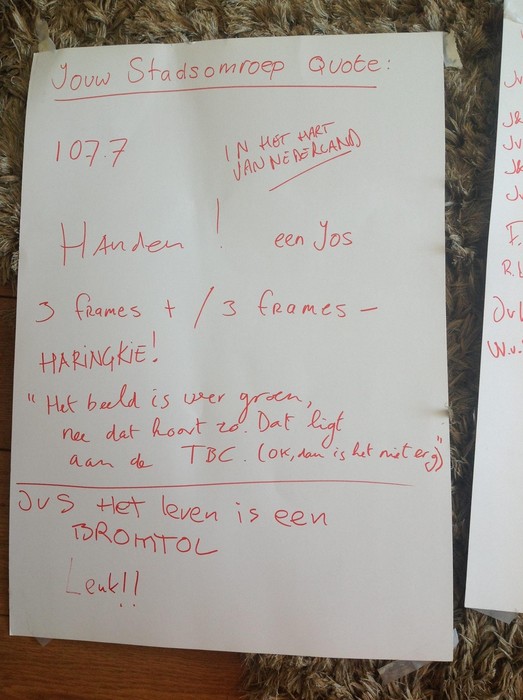 Jouw Stadsomroep Quote:
107.7
IN HET HART
VAN NEDERLAND
Handen! een Jos
3 frames + / 3 frames -
HARINGKIE!
"Het beeld is weer groen,
nee dat hoort zo. Dat ligt
aan de TBC. (OK, dan is het niet erg)"
JvS Het leven is een
BROMTOL
Leuk!!